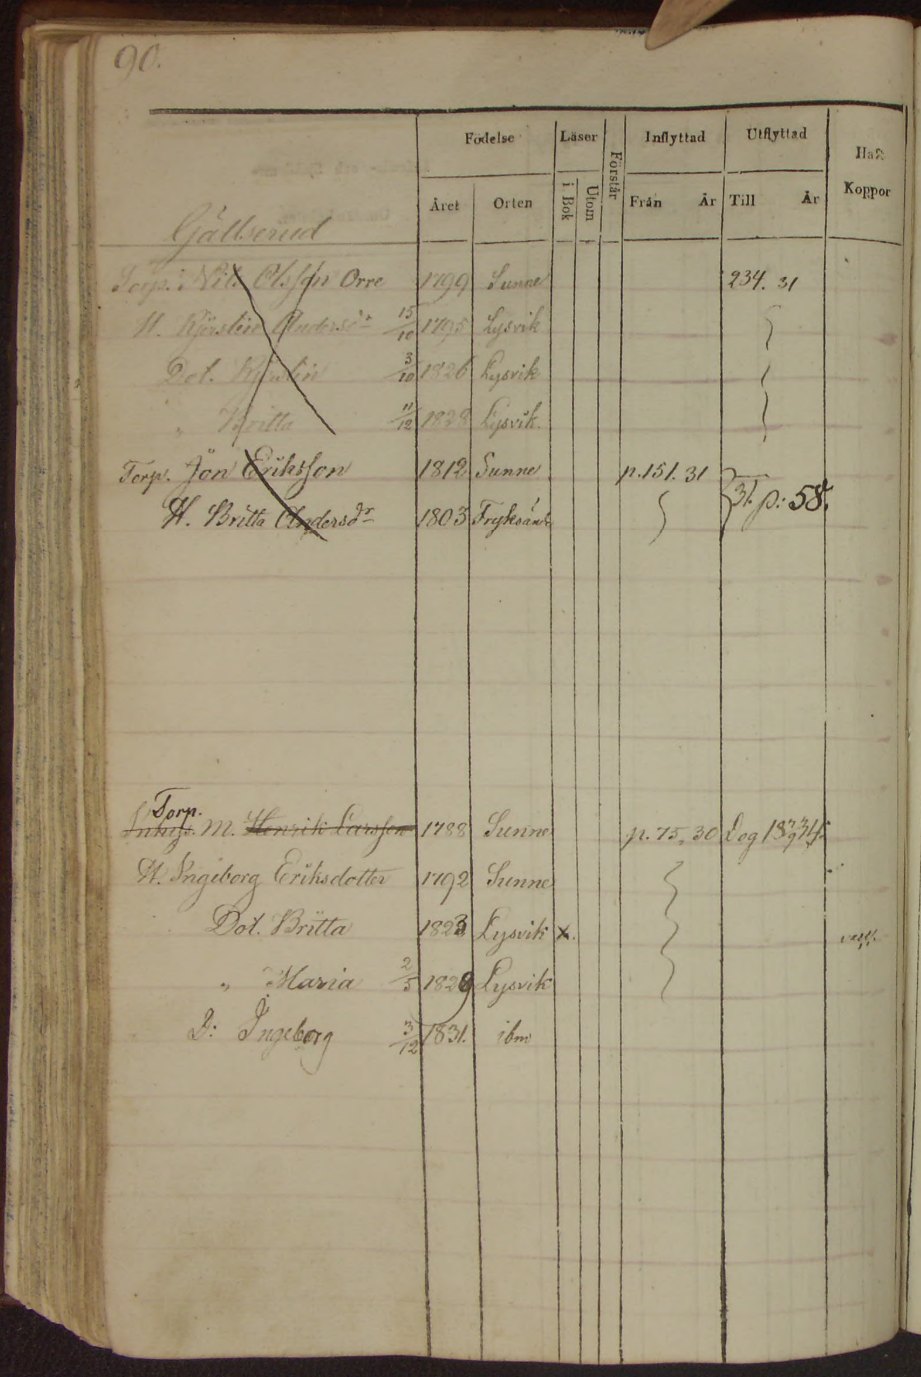 90.
Födelse Läser Förstår Inflyttad Utflyttad Haft Koppor
Året Orten i Bok Utom Från År Till År
Gällserud
Torp. Nils Olsson Orre 1799 Sunne 234. 31
H. Kjerstin Andersdr 15/10 1795 Lysvik
Dot. Kjerstin 3/10 1826 Lysvik
" Britta 11/12 1828 Lysvik.
Torp. Jon Eriksson 1812 Sunne p. 151. 31 31. p: 58.
H. Britta Andersdr 1803 Fryksände
Torp.
Inhys. M. Henrik Larsson 1788 Sunne p. 75, 30 Dog 18 34
H. Ingeborg Eriksdotter 1792 Sunne
Dot. Britta 1823 Lysvik x. vacc.
" Maria 2/5 1829 Lysvik
D: Ingeborg 3/12 1831. ibm